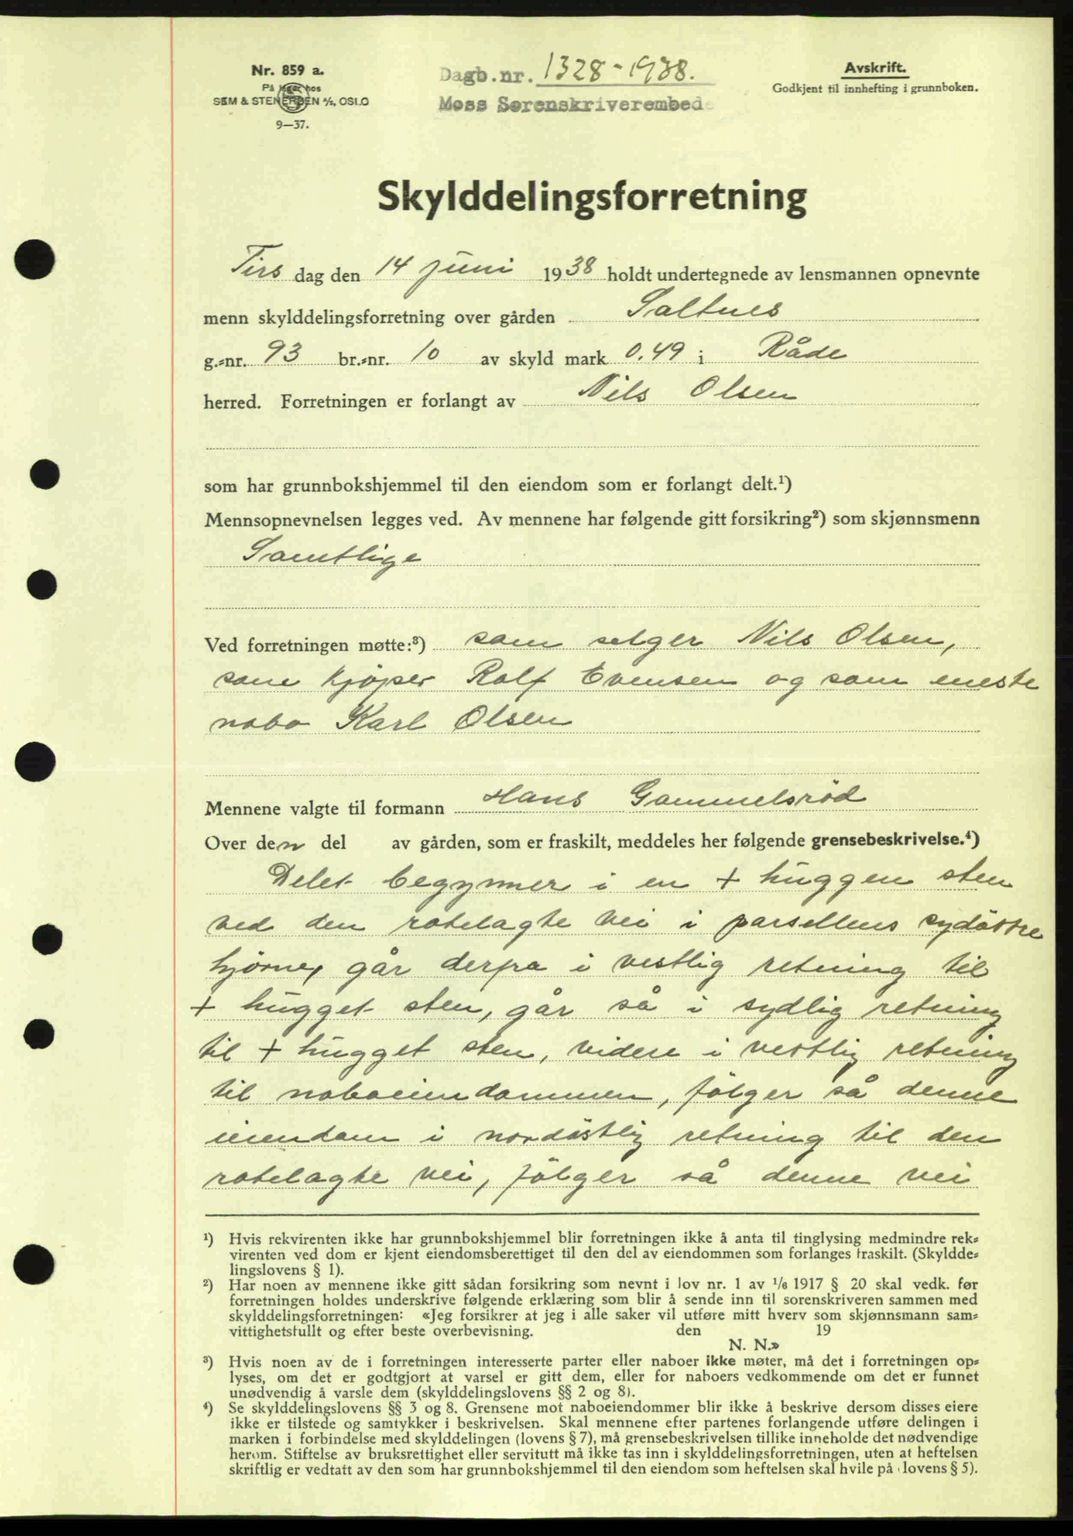 Nr. 859 a.
På lager hos
SEM & STENERSEN A/S, OSLO
9—37.
Dagb.nr. 1328-1938.
Moss Sorenskriverembede
Avskrift.
Godkjent til innhefting i grunnboken.
Skylddelingsforretning
Tirs dag den 14 juni 1938 holdt undertegnede av lensmannen opnevnte
menn skylddelingsforretning over gården Saltnes
g.-nr. 93 br.-nr. 10 av skyld mark 0.49 i Råde
herred. Forretningen er forlangt av Nils Olsen
som har grunnbokshjemmel til den eiendom som er forlangt delt.¹)
Mennsopnevnelsen legges ved. Av mennene har følgende gitt forsikring²) som skjønnsmenn
Samtlige
Ved forretningen møtte:³) som selger Nils Olsen,
som kjøper Rolf Evensen og som eneste
nabo Karl Olsen
Mennene valgte til formann Hans Gammelsröd
Over den del av gården, som er fraskilt, meddeles her følgende grensebeskrivelse.⁴)
Delet begynner i en + huggen sten
ved den rodelagte vei i parsellens sydöstre
hjörne, går derfra i vestlig retning til
+ hugget sten, går så i sydlig retning
til + hugget sten, videre i vestlig retning
til naboeiendommen, fölger så denne
eiendom i nordöstlig retning til den
rodelagte vei, fölger så denne vei
¹) Hvis rekvirenten ikke har grunnbokshjemmel blir forretningen ikke å anta til tinglysing medmindre rek-
virenten ved dom er kjent eiendomsberettiget til den del av eiendommen som forlanges fraskilt. (Skyldde-
lingslovens § 1).
²) Har noen av mennene ikke gitt sådan forsikring som nevnt i lov nr. 1 av 1/6 1917 § 20 skal vedk. før
forretningen holdes underskrive følgende erklæring som blir å sende inn til sorenskriveren sammen med
skylddelingsforretningen: «Jeg forsikrer at jeg i alle saker vil utføre mitt hverv som skjønnsmann sam-
vittighetsfullt og efter beste overbevisning. den 19
N. N.»
³) Hvis noen av de i forretningen interesserte parter eller naboer ikke møter, må det i forretningen op-
lyses, om det er godtgjort at varsel er gitt dem, eller for naboers vedkommende om det er funnet
unødvendig å varsle dem (skylddelingslovens §§ 2 og 8).
⁴) Se skylddelingslovens §§ 3 og 8. Grensene mot naboeiendommer blir ikke å beskrive dersom disses eiere
ikke er tilstede og samtykker i beskrivelsen. Skal mennene efter partenes forlangende utføre delingen i
marken i forbindelse med skylddelingen (lovens § 7), må grensebeskrivelsen tillike inneholde det nødvendige
herom. Stiftelse av bruksrettighet eller servitutt må ikke tas inn i skylddelingsforretningen, uten at heftelsen
skriftlig er vedtatt av den som har grunnbokshjemmel til den eiendom som heftelsen skal hvile på (lovens § 5).